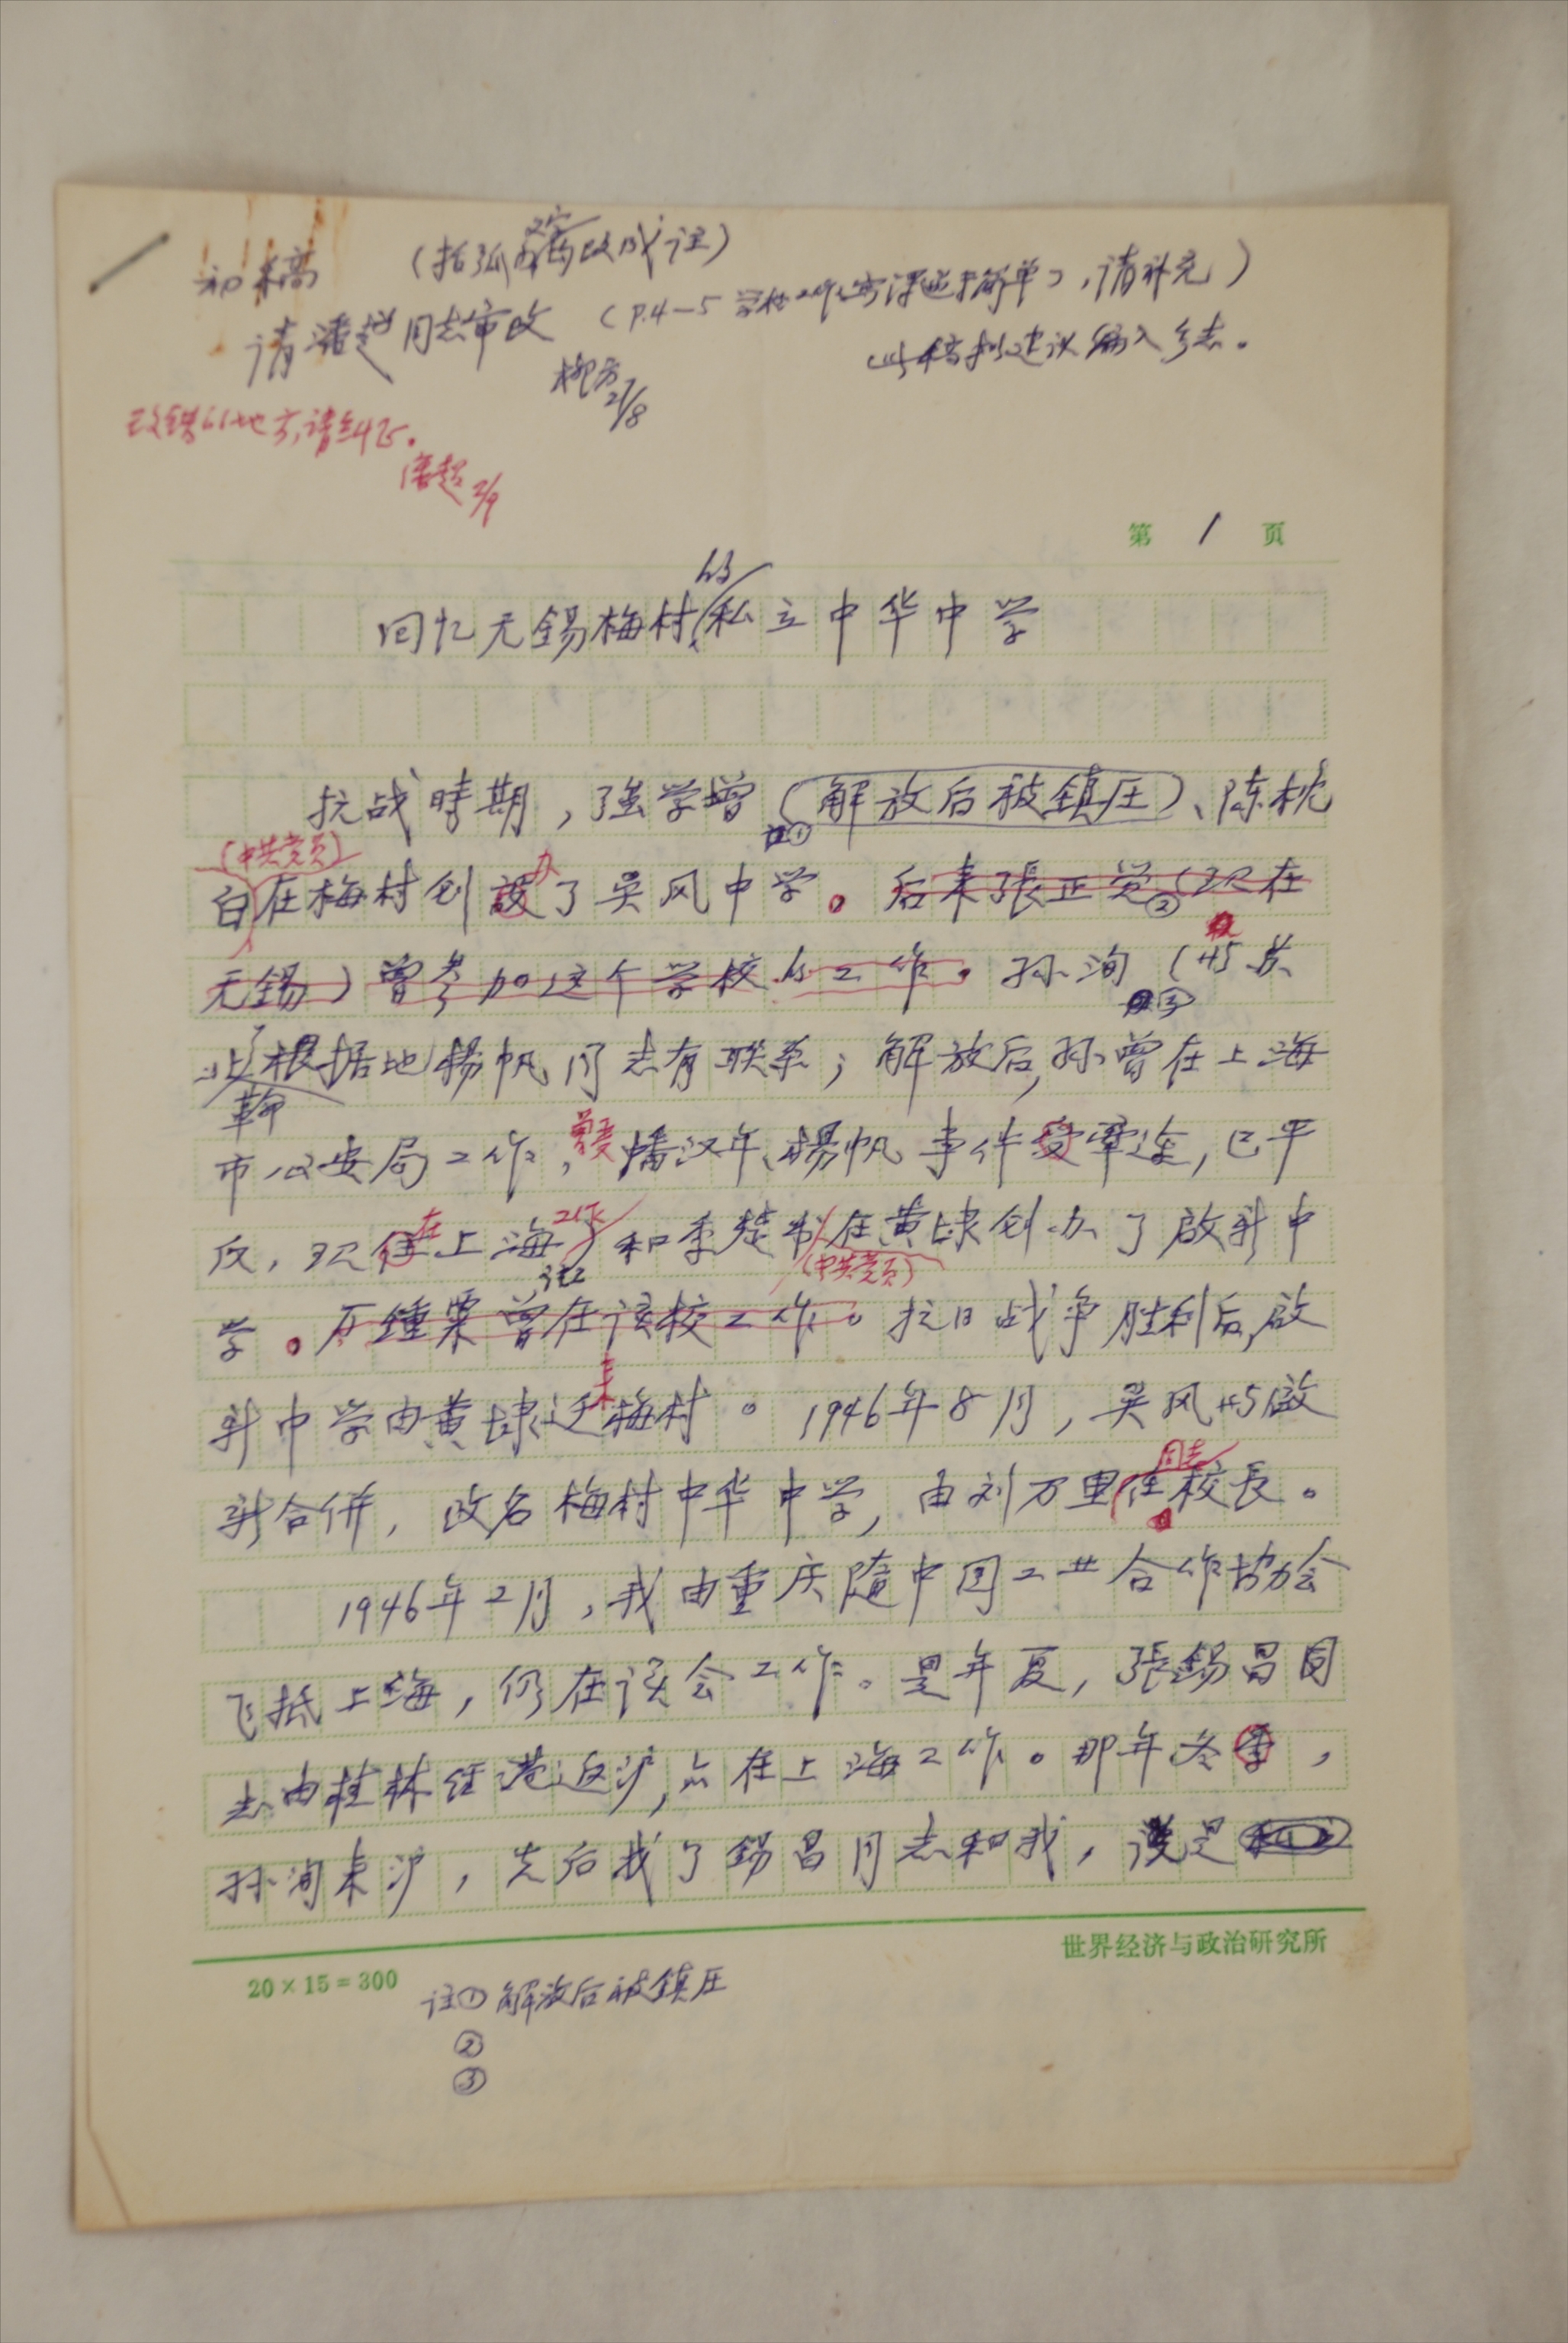 初稿 (括弧内容改成注)
请潘超同志审改 (P.4—5 学校工作写得过于简单了,请补充)
此稿拟建议编入乡志。
柳方 21/8
改错的地方,请纠正。
潘超 2/9
第 1 页
回忆无锡梅村的私立中华中学
抗战時期,强学增(解放后被镇压)①、陈枕
白(中共党员)在梅村创設办了吴风中学。后来張正觉②(现在
无锡)曾参加这个学校的工作。孙洵③(与苏
北革命根据地杨帆同志有联系;解放后,孙曾在上海
市公安局工作,曾受潘汉年、杨帆事件受牵连,已平
反,现住在上海工作)和李楚书(中共党员)在黄埭创办了啟新中
学。万鍾粟曾在该校工作。抗日战争胜利后,啟
新中学由黄埭迁来梅村。1946年8月,吴风与啟
新合併,改名梅村中华中学,由刘万里同志任校長。
1946年2月,我由重庆随中国工业合作协会
飞抵上海,仍在该会工作。是年夏,張錫昌同
志由桂林经港返沪,亦在上海工作。那年冬季,
孙洵来沪,先后找了錫昌同志和我,说是
世界经济与政治研究所
20×15=300
注① 解放后被镇压
②
③